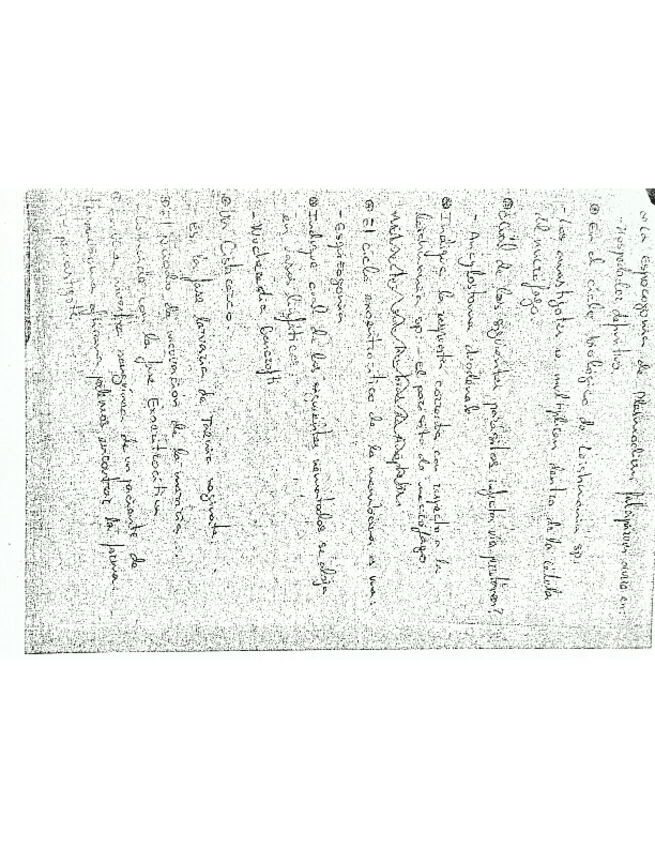 ⊛ La esporogonia de Plasmodium falciparum ocurre en:
- Hospedador definitivo.
⊛ En el ciclo biológico de Leishmania sp
- Los amastigotes se multiplican dentro de la célula
del macrófago.
⊛ Cuál de los siguientes parásitos infecta vía percutánea?
- Ancylostoma duodenale
⊛ Indique la respuesta correcta con respecto a la
leishmania sp: - el parásito de macrófago.
⊛ El ciclo exoeritrocítico de la es una:
- Esquizogonia
⊛ Indique cual de los siguientes nematodos se aloja
en vasos linfáticos:
- Wuchereria bancrofti
⊛ Un Cisticerco:
- Es la fase larvaria de Taenia saginata.
⊛ El periodo de incubación de la malaria:
- Coincide con la fase Exoeritrocítica
sanguínea de un paciente de
africana podemos encontrar la forma